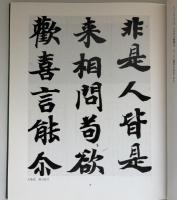 非是人皆是
来相問苟欲
歡喜言能尒